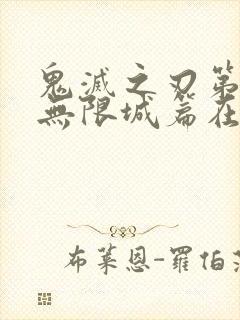 鬼滅之刃第
無限城篇在
布萊恩-羅伯